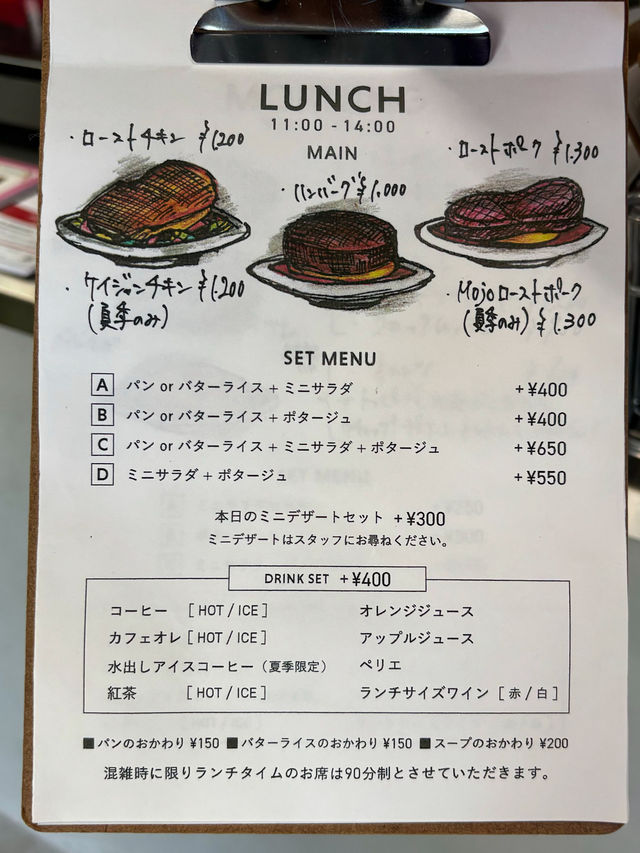 LUNCH
11:00 - 14:00
MAIN
・ローストチキン ¥1,200
・ハンバーグ ¥1,000
・ローストポーク ¥1,300
・ケイジャンチキン ¥1,200
(夏季のみ)
・Mojoローストポーク
(夏季のみ) ¥1,300
SET MENU
A パン or バターライス + ミニサラダ +¥400
B パン or バターライス + ポタージュ +¥400
C パン or バターライス + ミニサラダ + ポタージュ +¥650
D ミニサラダ + ポタージュ +¥550
本日のミニデザートセット +¥300
ミニデザートはスタッフにお尋ねください。
DRINK SET +¥400
コーヒー [ HOT / ICE ] オレンジジュース
カフェオレ [ HOT / ICE ] アップルジュース
水出しアイスコーヒー（夏季限定） ペリエ
紅茶 [ HOT / ICE ] ランチサイズワイン [ 赤 / 白 ]
■パンのおかわり ¥150 ■バターライスのおかわり ¥150 ■スープのおかわり ¥200
混雑時に限りランチタイムのお席は90分制とさせていただきます。